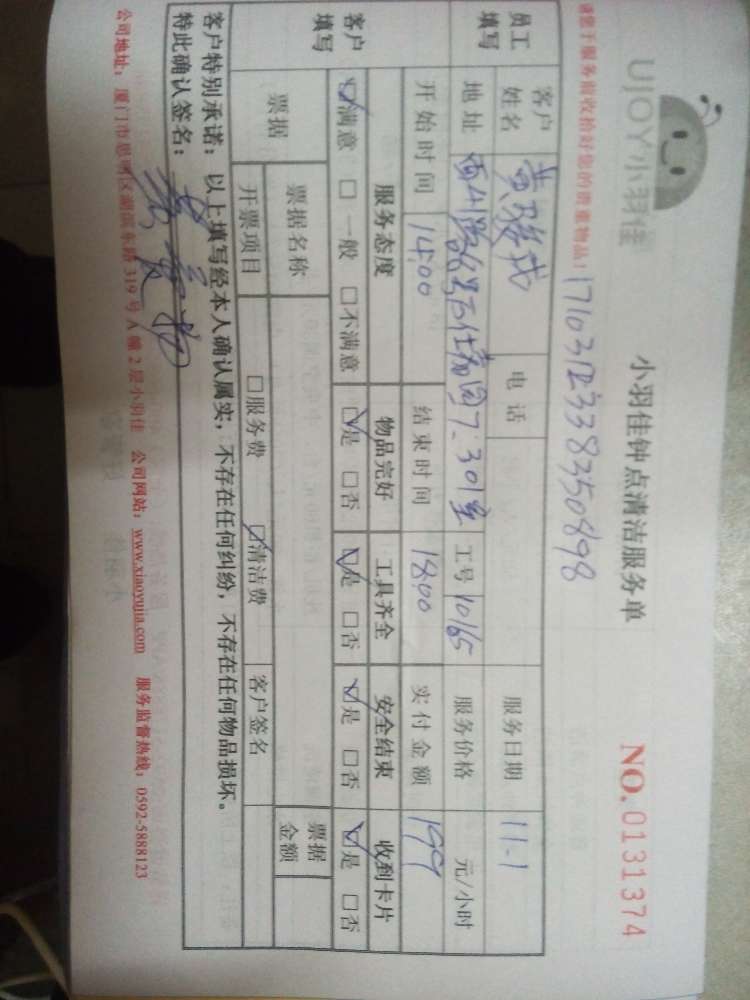 UJOY小羽佳
小羽佳钟点清洁服务单
NO. 0131374
请您于服务前收拾好您的贵重物品！
员工填写
客户姓名 黄 电话 服务日期 11-1
地址 7-301室 工号 10165 服务价格 元/小时
开始时间 14:00 结束时间 18:00 实付金额 199
客户填写
服务态度 物品完好 工具齐全 安全结束 收到卡片
☑满意 □一般 □不满意 ☑是 □否 ☑是 □否 ☑是 □否 ☑是 □否
票据 票据名称 票据金额
开票项目 □服务费 ☑清洁费 客户签名
客户特别承诺：以上填写经本人确认属实，不存在任何纠纷，不存在任何物品损坏。
特此确认签名：
公司地址：厦门市思明区湖滨东路319号A幢2层小羽佳 公司网站：www.xiaoyujia.com 服务监督热线：0592-5888123